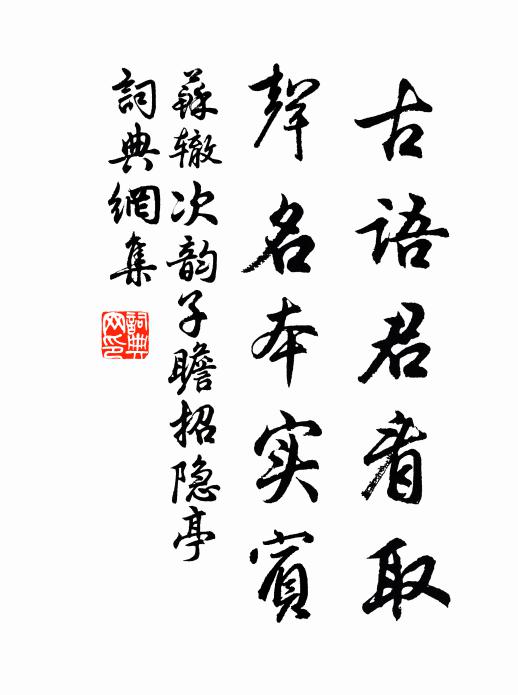 古语君看取
声名本实賓
蘇辙次韵子瞻招隐亭
詞典網集
詞典网印